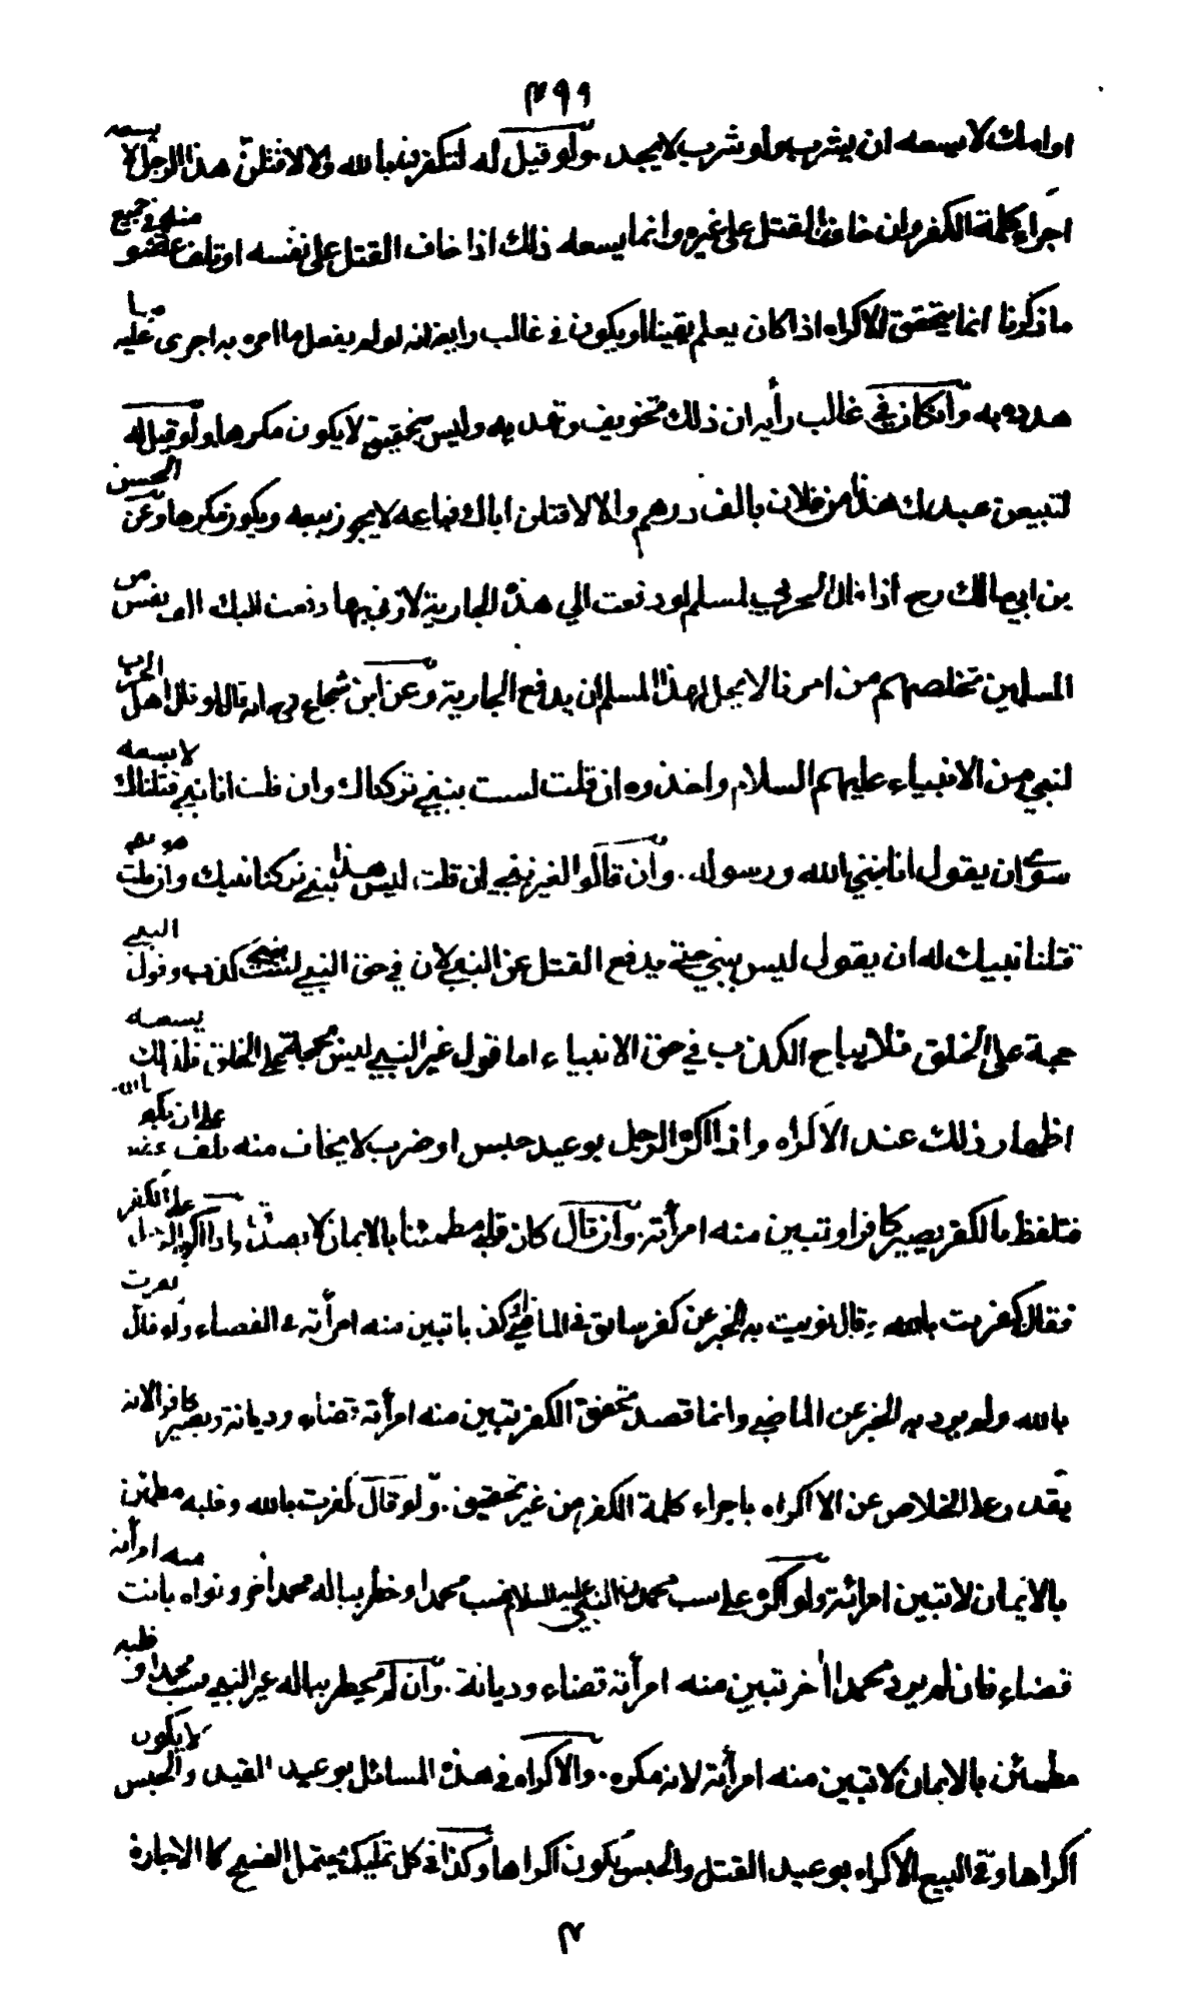 ٤٩٩
او امك لا يسعه ان يشرب ولو شرب لا يحد. ولو قيل له لتكفرن بالله والا لاقتلن هذا الرجل لا يسعه
اجراء كلمة الكفر وان خاف القتل على غيره وانما يسعه ذلك اذا خاف القتل على نفسه او تلف عضو منه وفي جميع
ما ذكرنا انما يتحقق الاكراه اذا كان يعلم يقينا او يكون في غالب رايه انه لو لم يفعل ما امره به اجرى عليه ما
هدده به وان كان في غالب رأيه ان ذلك تخويف وتهديد وليس بتحقيق لا يكون مكرها ولو قيل له
لتبيعن عبدك هذا من فلان بالف درهم والا لاقتلن اباك فباعه لا يجوز بيعه ويكون مكرها وعن الحسن
بن ابي مالك رح اذا قال الحربي لمسلم لو دفعت الي هذه الجارية لازني بها دفعت اليك الف نفس من
المسلمين تخلصهم من امرنا لا يحل لهذا المسلم ان يدفع الجارية وعن ابن شجاع رح انه قال لو قال اهل الحرب
لنبي من الانبياء عليهم السلام واخذوه ان قلت لست بنبي تركناك وان قلت انا نبي قتلناك لا يسعه
سوى ان يقول انا نبي الله ورسوله. وان قالوا لغير نبي ان قلت ليس هذا بنبي تركنا نبيك وان قلت هو نبي
قتلنا نبيك له ان يقول ليس بنبي حتى يدفع القتل عن النبي لان في حق النبي كذب وقول النبي
حجة على الخلق فلا يباح الكذب في حق الانبياء اما قول غير النبي ليس بحجة على الخلق فلذلك يسعه
اظهار ذلك عند الاكراه واذا اكره الرجل بوعيد حبس او ضرب لا يخاف منه تلف عضو على ان يكفر بالله
فتلفظ بالكفر يصير كافرا وتبين منه امرأته. وان قال كان قلبه مطمئنا بالايمان لا يصدق واذا اكره الرجل على الكفر
فقال كفرت بالله وقال نويت به الخبر عن كفر سابق في الماضي كذبا تبين منه امرأته في القضاء ولو قال كفرت
بالله ولم يرد به الخبر عن الماضي وانما قصد تحقق الكفر تبين منه امرأته قضاء وديانة ويصير كافرا لانه
يقدر على الخلاص عن الاكراه باجراء كلمة الكفر من غير تحقيق. ولو قال كفرت بالله وقلبه مطمئن
بالايمان لا تبين امرأته ولو اكره على سب محمدن النبي عليه السلام فسب محمدا وخطر بباله محمد اخر ونواه بانت منه امرأته
قضاء فان لم يرد محمدا اخر تبين منه امرأته قضاء وديانة. وان لم يخطر بباله غير النبي سب محمدا وقلبه
مطمئن بالايمان لا تبين منه امرأته لانه مكره. والاكراه في هذه المسائل بوعيد القيد والحبس لا يكون
اكراها وفي البيع الاكراه بوعيد القتل والحبس يكون اكراها وكذا في كل تمليك يحتمل الفسخ كالاجارة